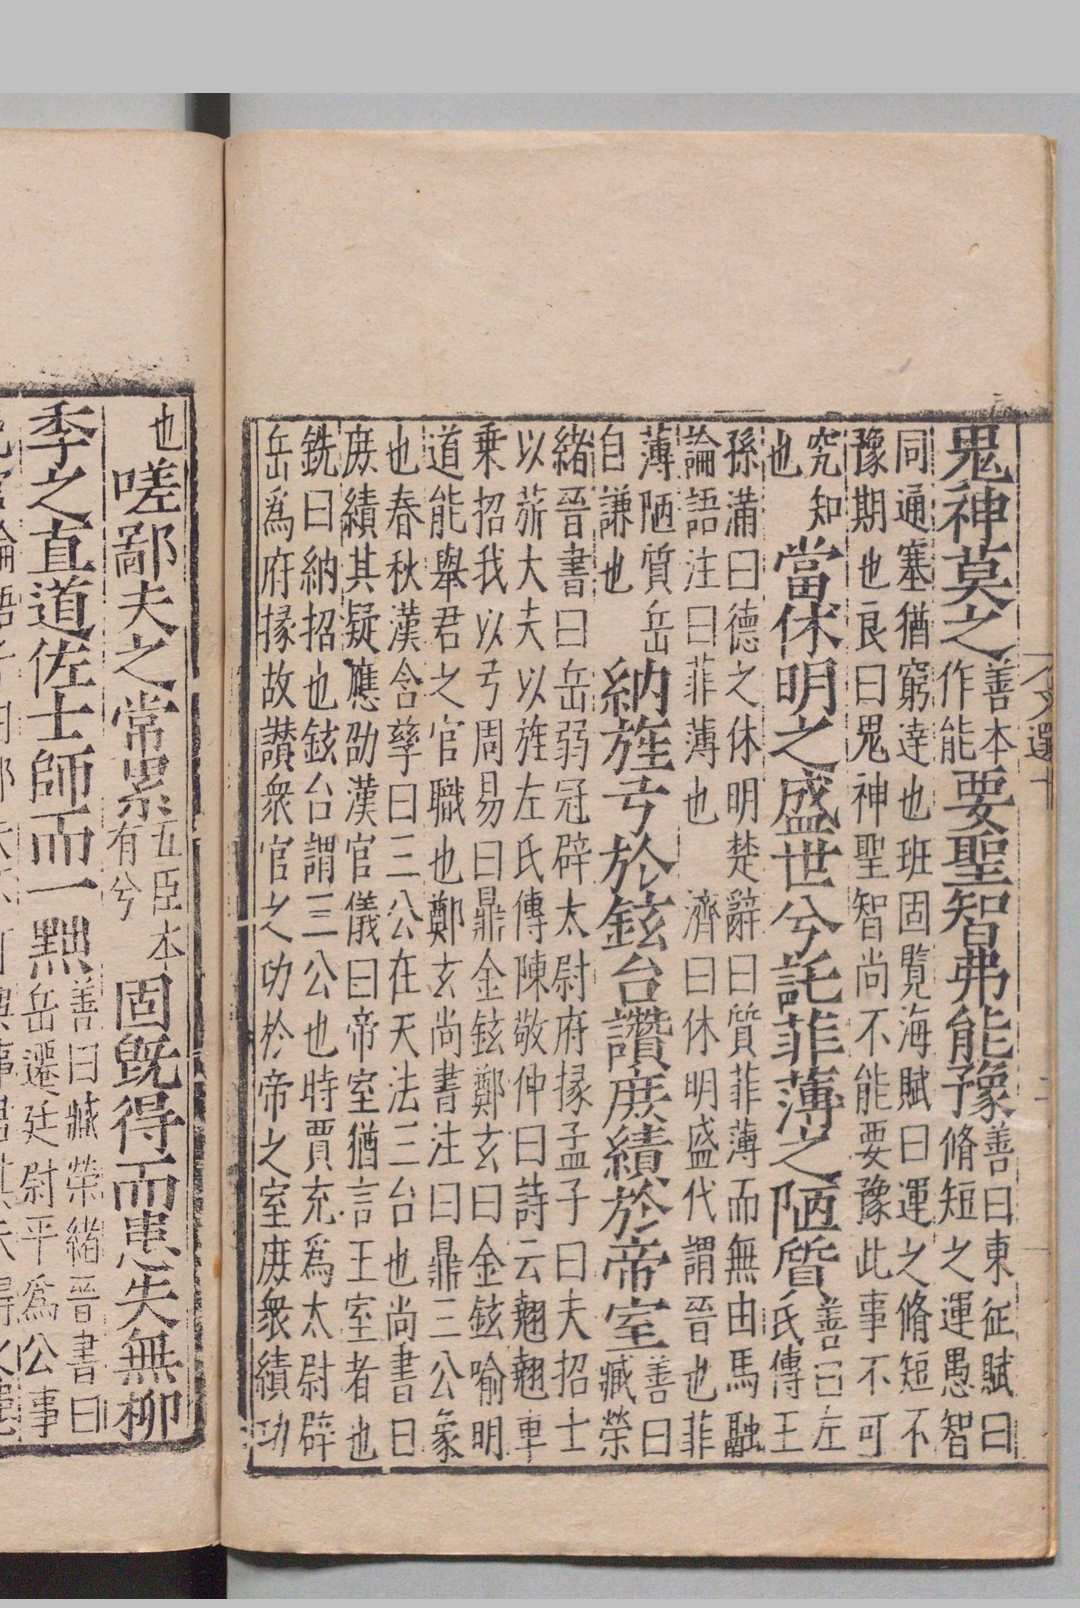 鬼神莫之善本作能要聖智弗能豫善曰東征賦曰脩短之運愚智
同通塞猶窮達也班固覽海賦曰運之脩短不
豫期也良曰鬼神聖智尚不能要豫此事不可
究知也當休明之盛世兮託菲薄之陋質善曰左氏傳王
孫滿曰德之休明楚辭曰質菲薄而無由馬融
論語注曰菲薄也 濟曰休明盛代謂晉也菲
薄陋質岳自謙也納旌弓於鉉台讚庶績於帝室善曰臧榮
緒晉書曰岳弱冠辟太尉府掾孟子曰夫招士
以旂大夫以旌左氏傳陳敬仲曰詩云翹翹車
乘招我以弓周易曰鼎金鉉鄭玄曰金鉉喻明
道能舉君之官職也鄭玄尚書注曰鼎三公象
也春秋漢含孳曰三公在天法三台也尚書曰
庶績其疑應劭漢官儀曰帝室猶言王室者也
銑曰納招也鉉台謂三公也時賈充爲太尉辟
岳爲府掾故讚衆官之功於帝之室庶衆績功
也嗟鄙夫之常累五臣本有兮固既得而患失無柳
季之直道佐士師而一黜善曰臧榮緒晉書曰岳遷廷尉平爲公事